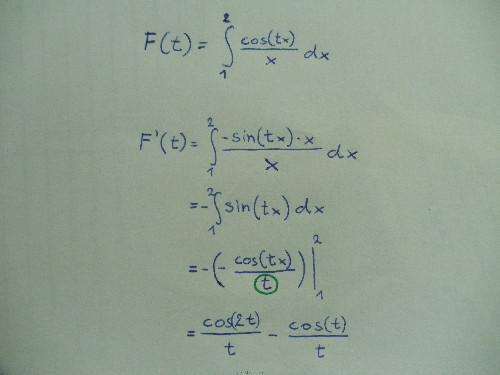 F(t) = ∫₁² cos(tx)/x dx
F'(t) = ∫₁² -sin(tx)·x/x dx
= -∫₁² sin(tx) dx
= -(-cos(tx)/t)|₁²
= cos(2t)/t - cos(t)/t